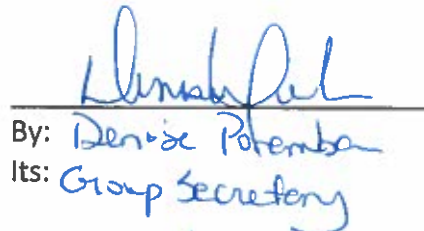 By: Denise Potemba
Its: Group Secretary